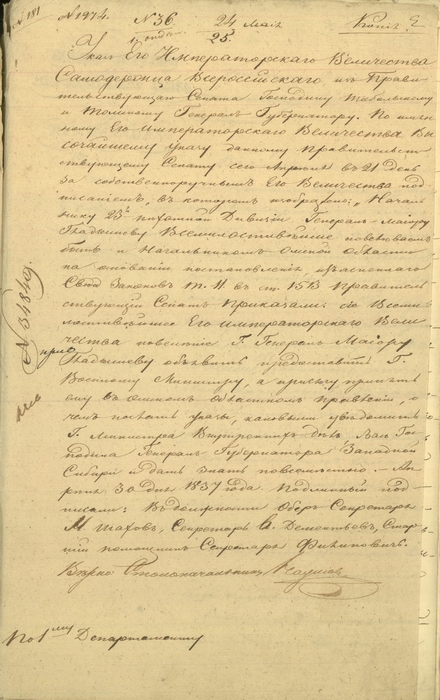 № 181 № 1974. № 36. 24 Мая
25.
Указ Его Императорского Величества
Самодержца Всероссийского из Прави-
тельствующаго Сената Господину Тобольскому
и Томскому Генерал Губернатору. По имен-
ному Его Императорского Величества Вы-
сочайшему указу данному Правительст-
вующему Сенату сего Апреля в 21 день
за собственноручным Его Величества под-
писанием, в котором изображено: "Началь-
нику 23й пехотной Дивизии Генерал-Маиору
Всемилостивейше повелеваем
быть и Начальником Омской Области
на основании постановления, изъясненнаго
Свода Законов т. II в ст. Правитель-
ствующий Сенат Приказали: о Всеми-
лостивейшее Его Императорского Вели-
чества повеление Г. Генерал Маиору
объявить предоставить Г.
Военному Министру, а присягу принять
ему в Омском областном Правлении, о
чем послать указы, каковыми уведомить
Г. Министра Внутренних Дел, Вас Гос-
подина Генерал Губернатора Западной
Сибири и дать знать повсеместно. – Ап-
реля 30 дня 1837 года. Подлинный под-
писали: В должности Обер Секретаря
Секретарь Дементьев, Стар-
ший помощник Секретаря
Верно Столоначальник Наумов
№ 31849
По 1му Департаменту